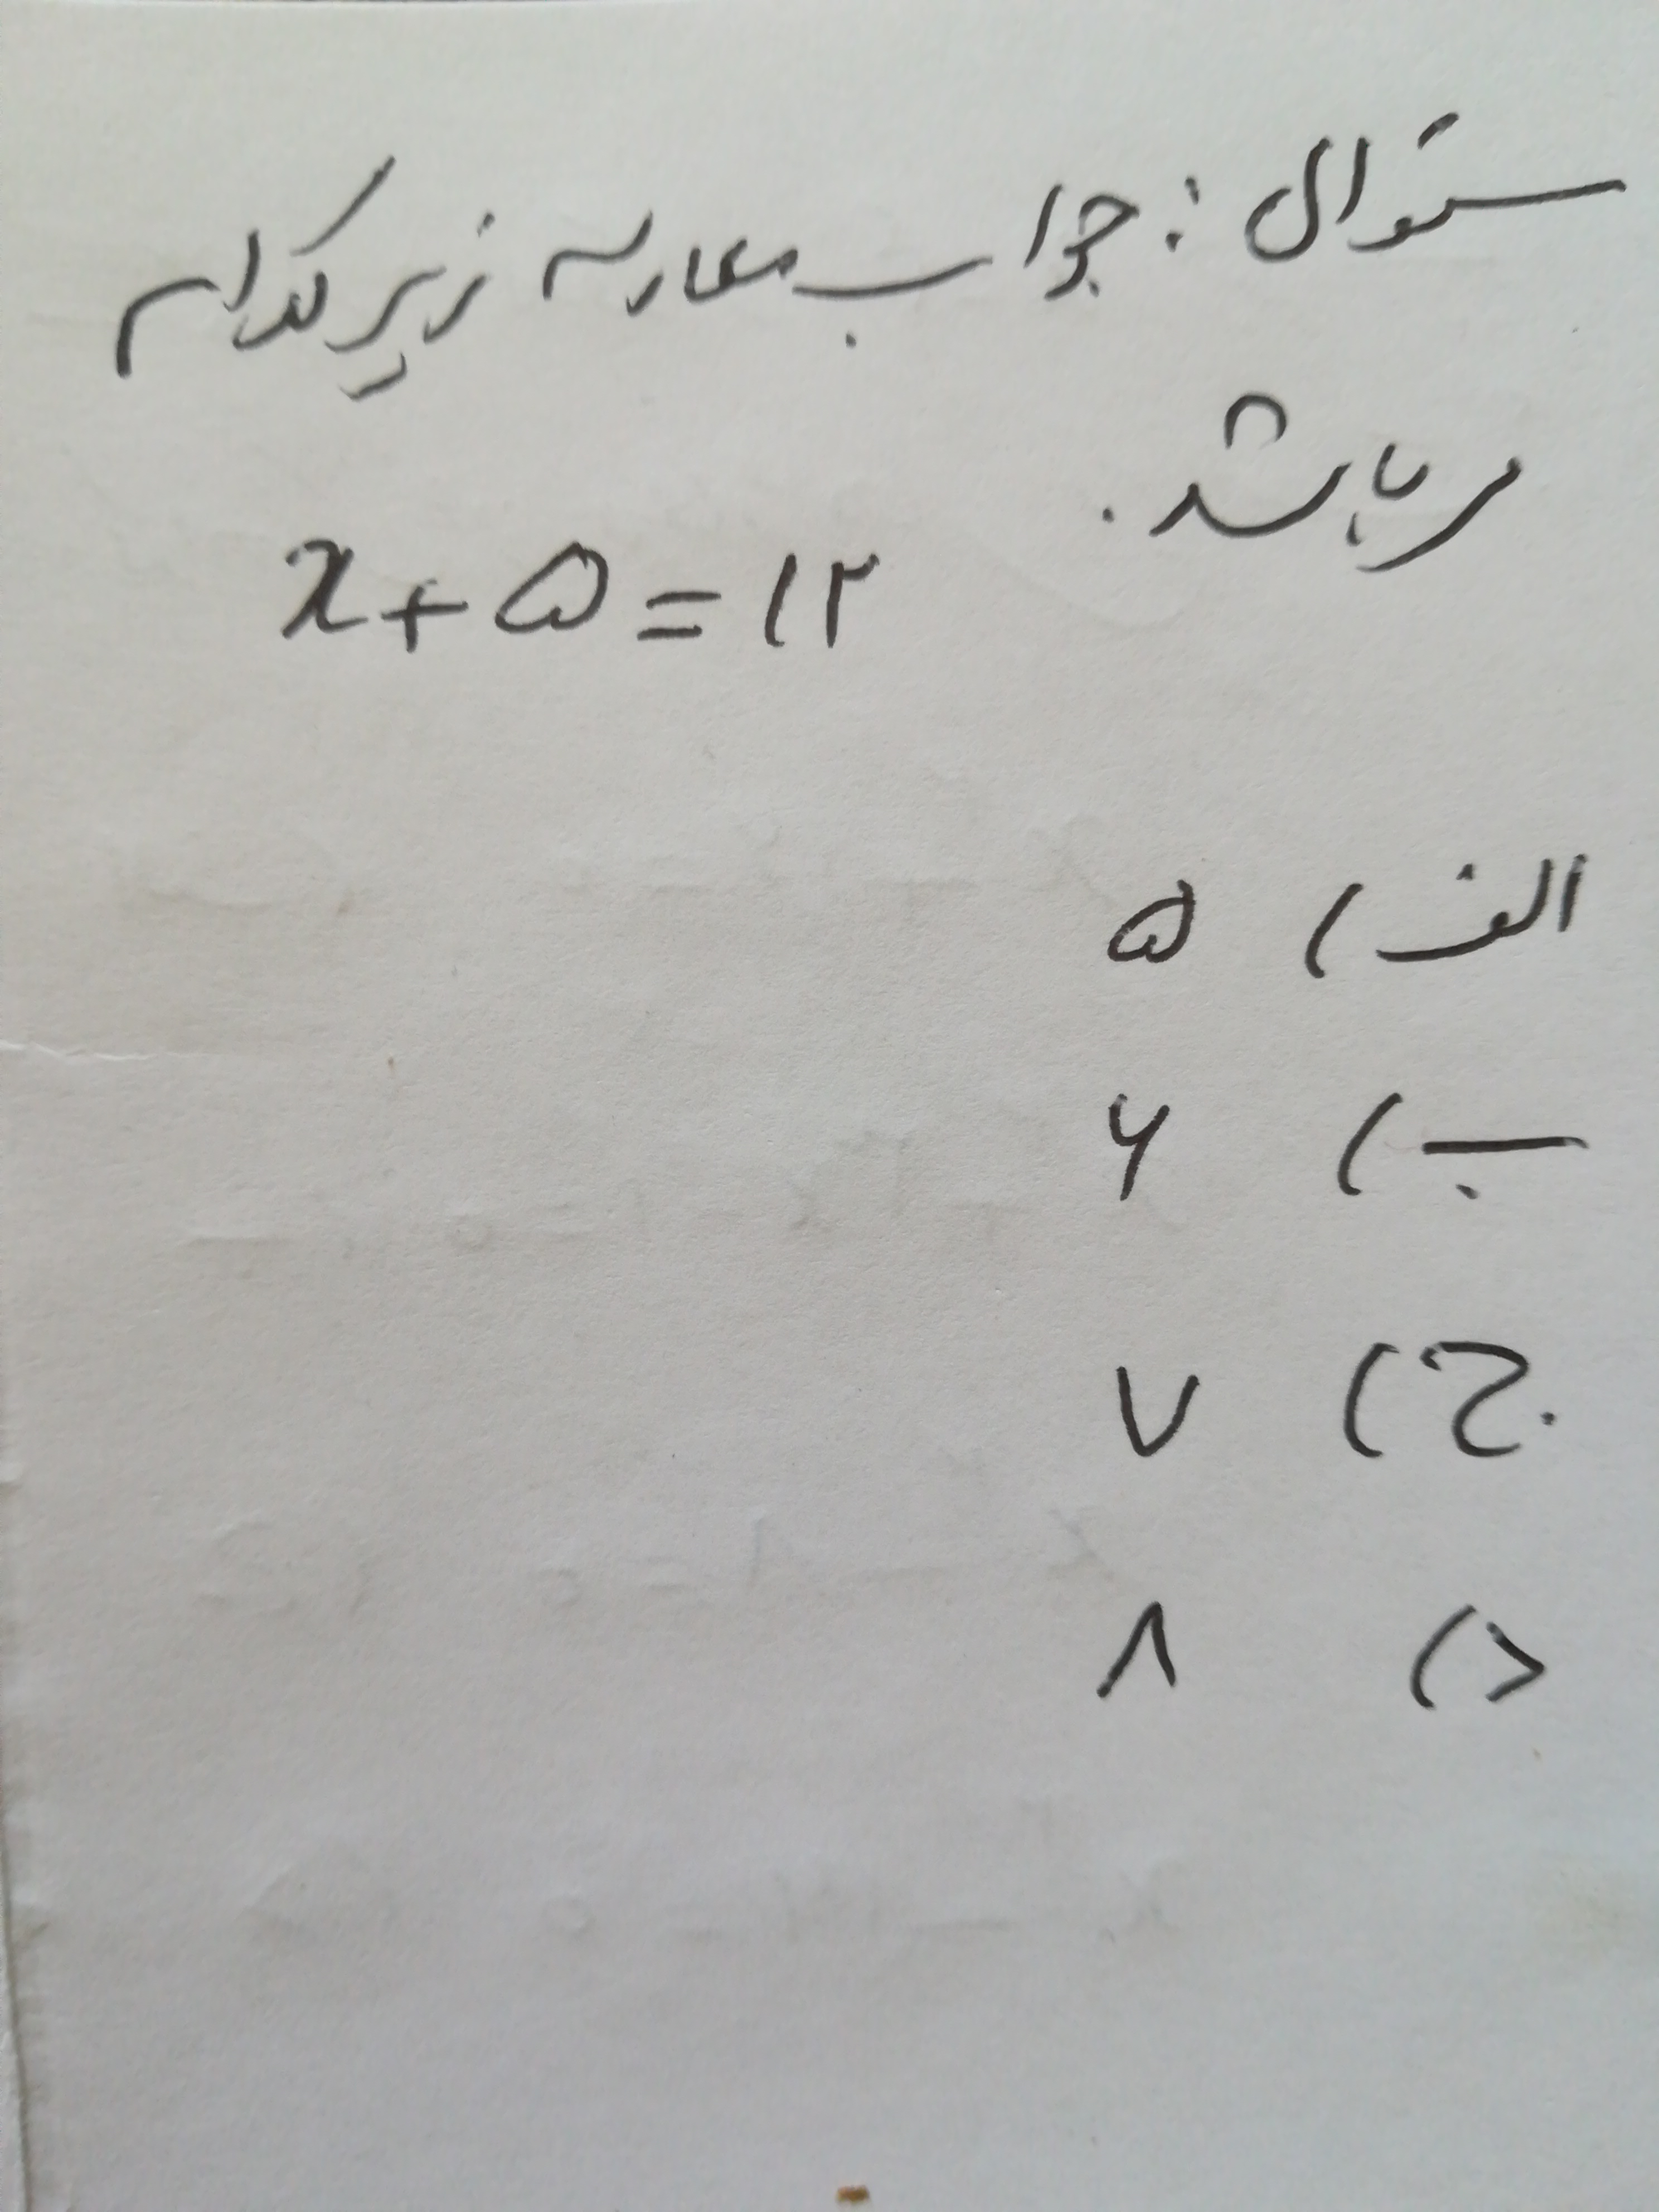 سئوال : جواب معادله زیر کدام
می باشد .
x + ۵ = ۱۲
الف ) ۵
ب ) ۶
ج ) ۷
د ) ۸